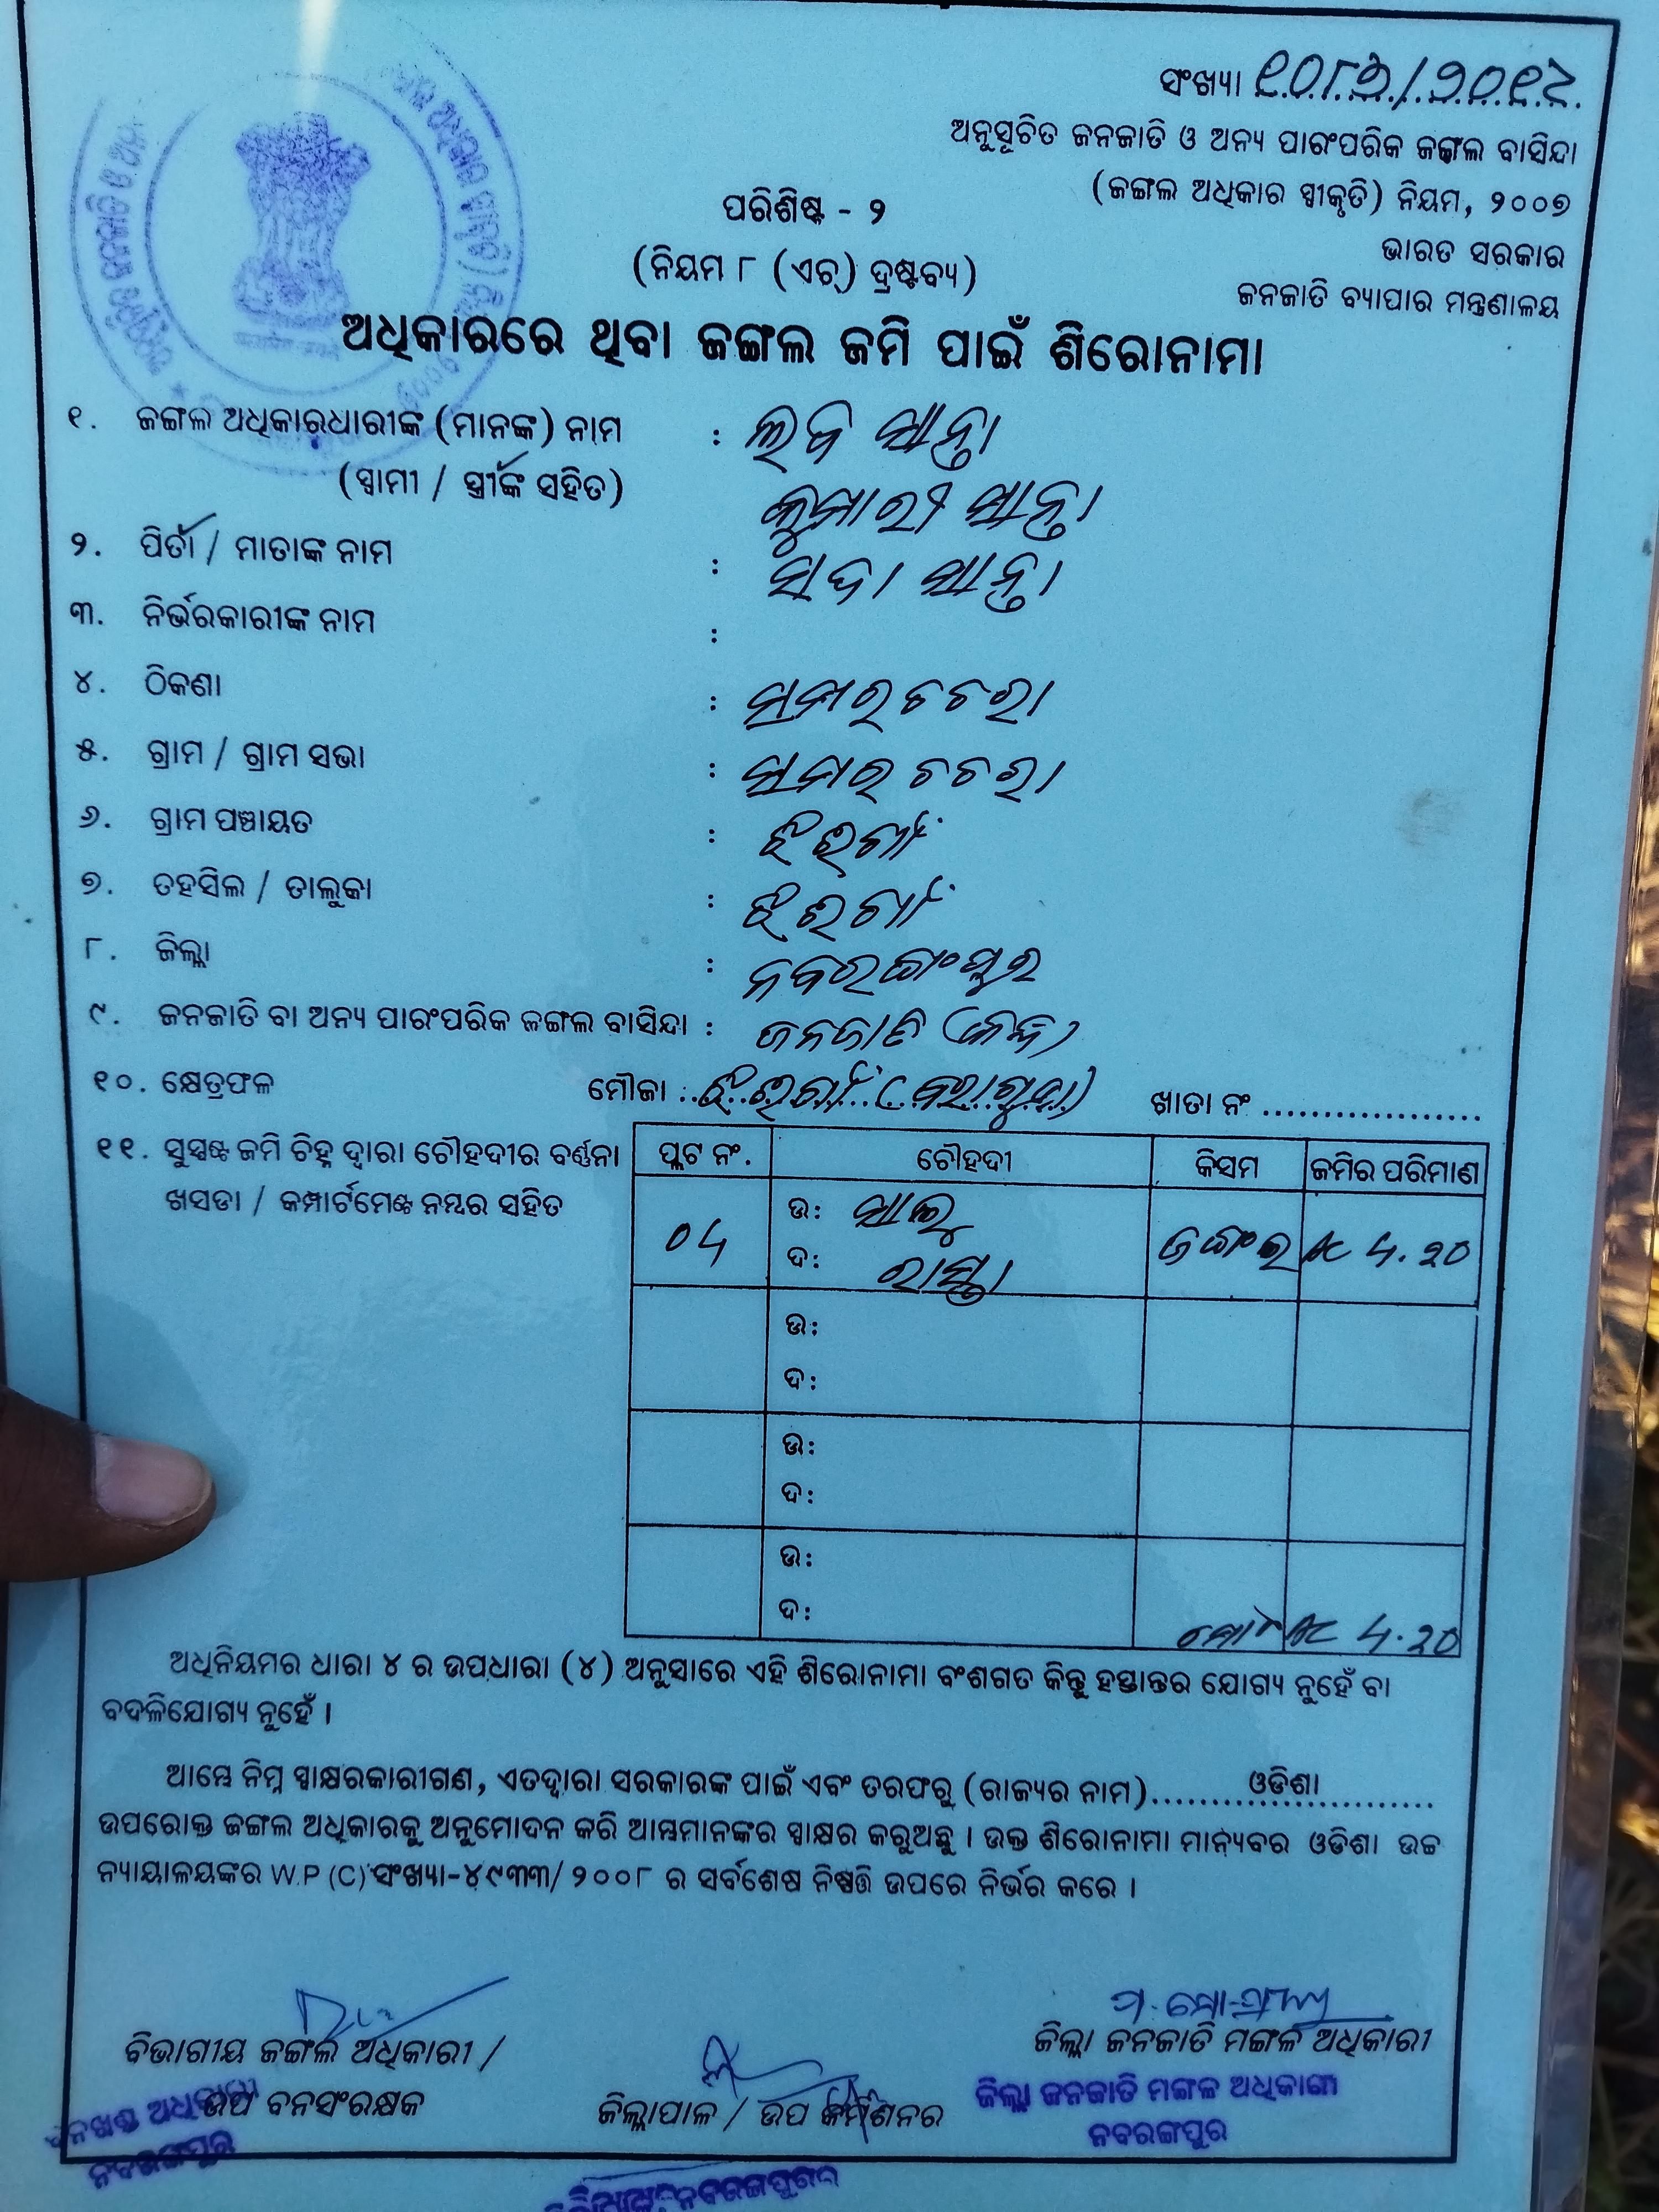 ସଂଖ୍ୟା ୧୦୮୬/୨୦୧୨
ଅନୁସୂଚିତ ଜନଜାତି ଓ ଅନ୍ୟ ପାରଂପରିକ ଜଙ୍ଗଲ ବାସିନ୍ଦା
(ଜଙ୍ଗଲ ଅଧିକାର ସ୍ୱୀକୃତି) ନିୟମ, ୨୦୦୭
ଭାରତ ସରକାର
ଜନଜାତି ବ୍ୟାପାର ମନ୍ତ୍ରଣାଳୟ
ପରିଶିଷ୍ଟ - ୨
(ନିୟମ ୮ (ଏଚ୍) ଦ୍ରଷ୍ଟବ୍ୟ)
ଅଧିକାରରେ ଥିବା ଜଙ୍ଗଲ ଜମି ପାଇଁ ଶିରୋନାମା
୧. ଜଙ୍ଗଲ ଅଧିକାରଧାରୀଙ୍କ (ମାନଙ୍କ) ନାମ :
(ସ୍ୱାମୀ / ସ୍ତ୍ରୀଙ୍କ ସହିତ) କୁମାରୀ ଶାନ୍ତା
୨. ପିତା / ମାତାଙ୍କ ନାମ :
୩. ନିର୍ଭରକାରୀଙ୍କ ନାମ :
୪. ଠିକଣା :
୫. ଗ୍ରାମ / ଗ୍ରାମ ସଭା :
୬. ଗ୍ରାମ ପଞ୍ଚାୟତ : ଝରିଗାଁ
୭. ତହସିଲ / ତାଲୁକା : ଝରିଗାଁ
୮. ଜିଲ୍ଲା : ନବରଙ୍ଗପୁର
୯. ଜନଜାତି ବା ଅନ୍ୟ ପାରଂପରିକ ଜଙ୍ଗଲ ବାସିନ୍ଦା : ଜନଜାତି
୧୦. କ୍ଷେତ୍ରଫଳ ମୌଜା ..ଝରିଗାଁ ଖାତା ନଂ ..................
୧୧. ସୁସ୍ପଷ୍ଟ ଜମି ଚିହ୍ନ ଦ୍ୱାରା ଚୌହଦୀର ବର୍ଣ୍ଣନା
ଖସଡା / କମ୍ପାର୍ଟମେଣ୍ଟ ନମ୍ବର ସହିତ
ପ୍ଲଟ ନଂ. ଚୌହଦୀ କିସମ ଜମିର ପରିମାଣ
04 ଉ: ଜଙ୍ଗଲ Ac 4.20
ଦ: ରାସ୍ତା
ଉ:
ଦ:
ଉ:
ଦ:
ଉ:
ଦ:
ମୋଟ Ac 4.20
ଅଧିନିୟମର ଧାରା ୪ ର ଉପଧାରା (୪) ଅନୁସାରେ ଏହି ଶିରୋନାମା ବଂଶଗତ କିନ୍ତୁ ହସ୍ତାନ୍ତର ଯୋଗ୍ୟ ନୁହେଁ ବା
ବଦଳିଯୋଗ୍ୟ ନୁହେଁ ।
ଆମ୍ଭେ ନିମ୍ନ ସ୍ୱାକ୍ଷରକାରୀଗଣ, ଏତଦ୍ୱାରା ସରକାରଙ୍କ ପାଇଁ ଏବଂ ତରଫରୁ (ରାଜ୍ୟର ନାମ)........ଓଡିଶା........
ଉପରୋକ୍ତ ଜଙ୍ଗଲ ଅଧିକାରକୁ ଅନୁମୋଦନ କରି ଆମ୍ଭମାନଙ୍କର ସ୍ୱାକ୍ଷର କରୁଅଛୁ । ଉକ୍ତ ଶିରୋନାମା ମାନ୍ୟବର ଓଡିଶା ଉଚ୍ଚ
ନ୍ୟାୟାଳୟଙ୍କର W.P (C) ସଂଖ୍ୟା-୪୯୩୩/ ୨୦୦୮ ର ସର୍ବଶେଷ ନିଷ୍ପତ୍ତି ଉପରେ ନିର୍ଭର କରେ ।
ବିଭାଗୀୟ ଜଙ୍ଗଲ ଅଧିକାରୀ /
ଉପ ବନସଂରକ୍ଷକ
ଜିଲ୍ଲାପାଳ / ଉପ କମିଶନର
ଜିଲ୍ଲା ଜନଜାତି ମଙ୍ଗଳ ଅଧିକାରୀ
ଜିଲ୍ଲା ଜନଜାତି ମଙ୍ଗଳ ଅଧିକାରୀ
ନବରଙ୍ଗପୁର
ନବରଙ୍ଗପୁର